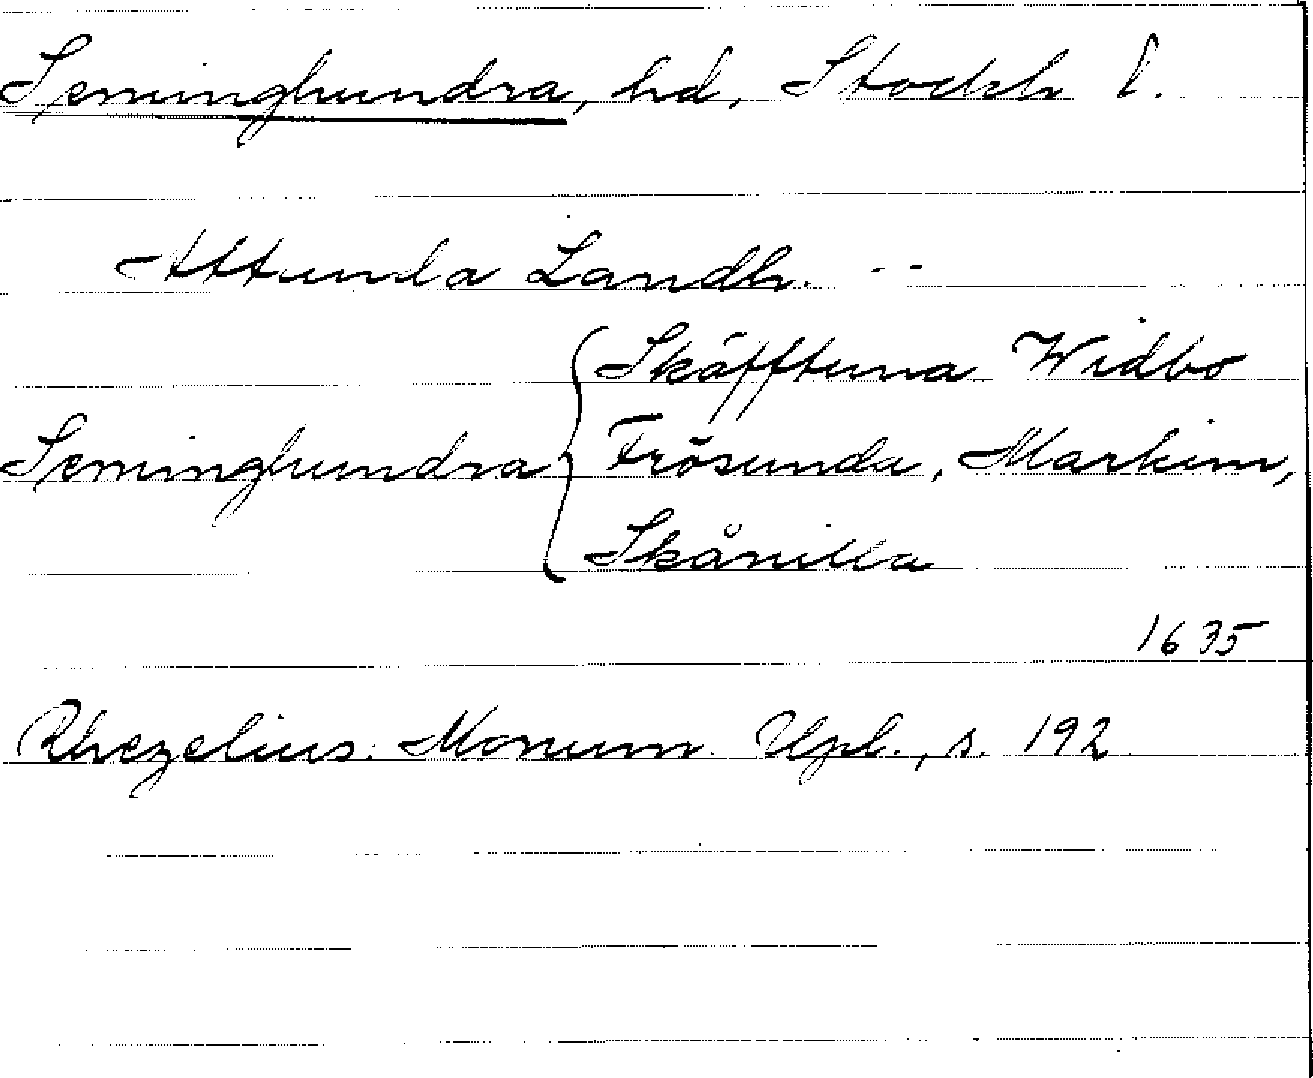 Seminghundra, hd, Stockh l.
Attunda Landh. - -
Skäfftuna Widbo
Seminghundra Frösunda, Markim,
Skånilla
1635
Rhezelius. Monum. Upl., s. 192